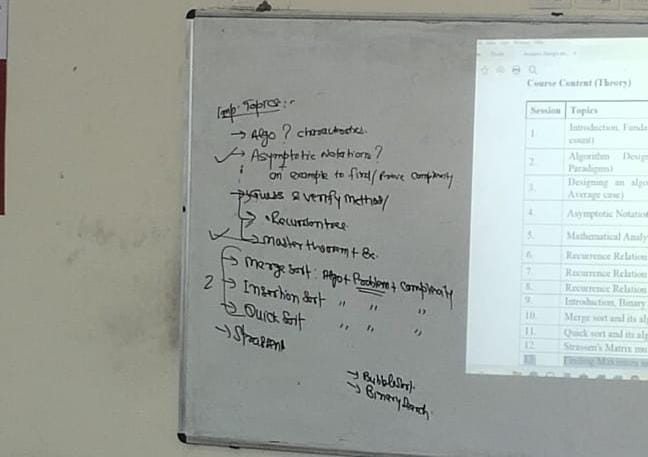 Imp. Topics:-
→ Algo ? characteristics.
✓→ Asymptotic Notations ?
an example to find/Prove complexity
→ Guess & verify Method/
→ Recursion tree
✓→ Master theorem +
→ Merge Sort : Algo + Problem + Complexity
2 → Insertion Sort " " "
→ Quick Sort " " "
→ Strassen
→ Bubble Sort.
→ Binary Search.
Course Content (Theory)
Session Topics
1. Introduction, Funda
count)
2. Algorithm Desig
Paradigms)
3. Designing an algo
Average case)
4. Asymptotic Notatio
5. Mathematical Analy
6. Recurrence Relation
7. Recurrence Relation
8. Recurrence Relation
9. Introduction, Binary
10. Merge sort and its alg
11. Quick sort and its alg
12. Strassen's Matrix mu
13. Finding Maximum